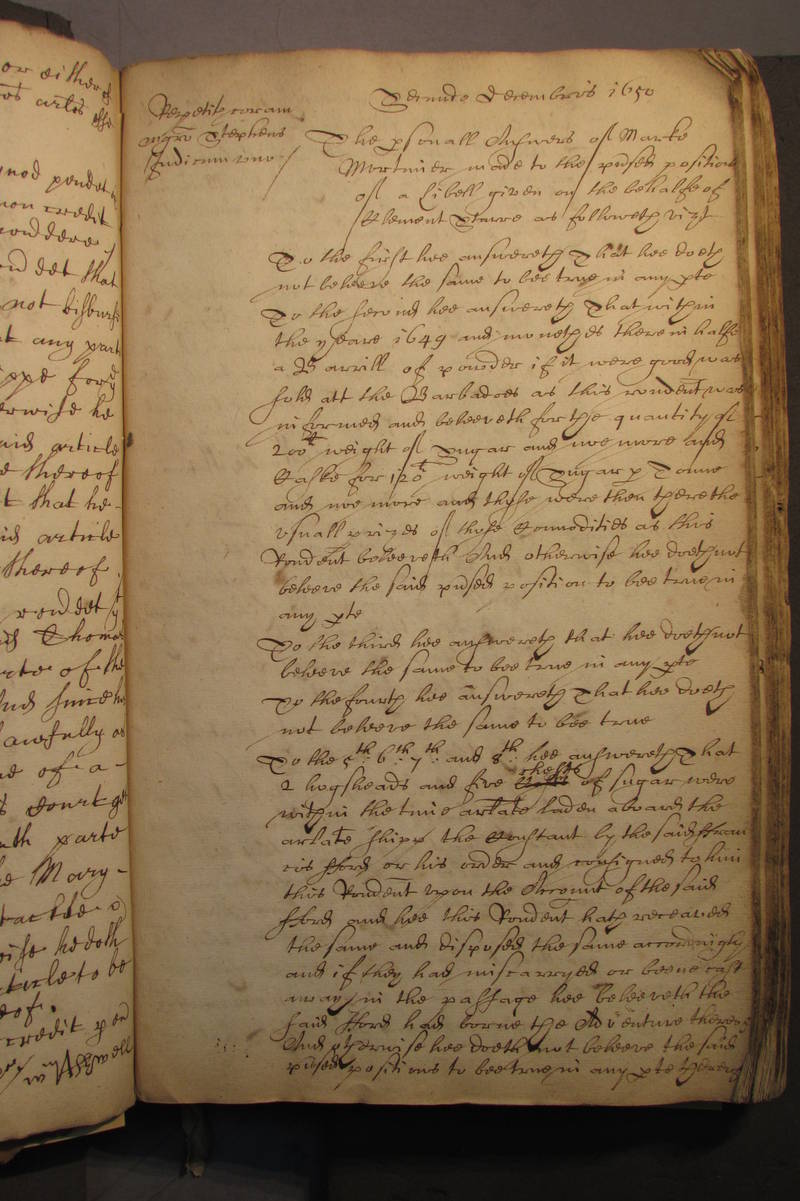 or either of
arties esse
quod pendet
non credit
respondere
rendet that
not disburse
t any part
ippe for
erwise he
aid article
e thereof
t that he
id article
thereof
rendet
Thomas
arte of the
And since he
lawfully
e of a
s Court
uth parte
he Mary
wise he doth
rticle to be
eof.
credit
Wm
Repetit coram
Stephens
Secundo decembris 1650
The psonall Answers of Marke
Mortimer made to the pused positions
of a libell given on the behalfe of
Clement Starre as followeth vizt
To the first hee answereth That hee doeth
not beleeve the same to bee true in any pte
To the second hee answereth That within
the yeare 1649 and moneths therein halfe
a Barrill of powder if it were good was
sold att the Barbadoes as this rondent was
informed and beleeveth for the quantity of
200 weight of Sugar and noe more and
Caske for 120 weight of Sugar p Tonne
and noe more and those were then there the
usuall prizes of those Commodities as this
Rondent beleeveth And otherwise hee doeth not
beleeve the said pused position to bee true in
any pte
To the third hee answereth that hee doeth not
beleeve the same to bee true in any pte
To the fourth hee answereth That hee doeth
not beleeve the same to bee true
To the 5th: 6th: 7th: and 8th: hee answereth That
2 hogsheads and five chests of sugar were
within the time arlate laden aboard the
arlate shipp the Constant by the said Fran
cis Fford or his order and consigned to him
this Rondent upon the Account of the said
Fford and hee this Rondent hath receaved
the same and disposed the same accordingly
and if they had miscarryed or beene cast
away in the passage hee beleeveth the
said Fford had borne the Adventure thereof
And otherwise hee doeth not beleeve the said
pused positions to bee true in any pte thereof